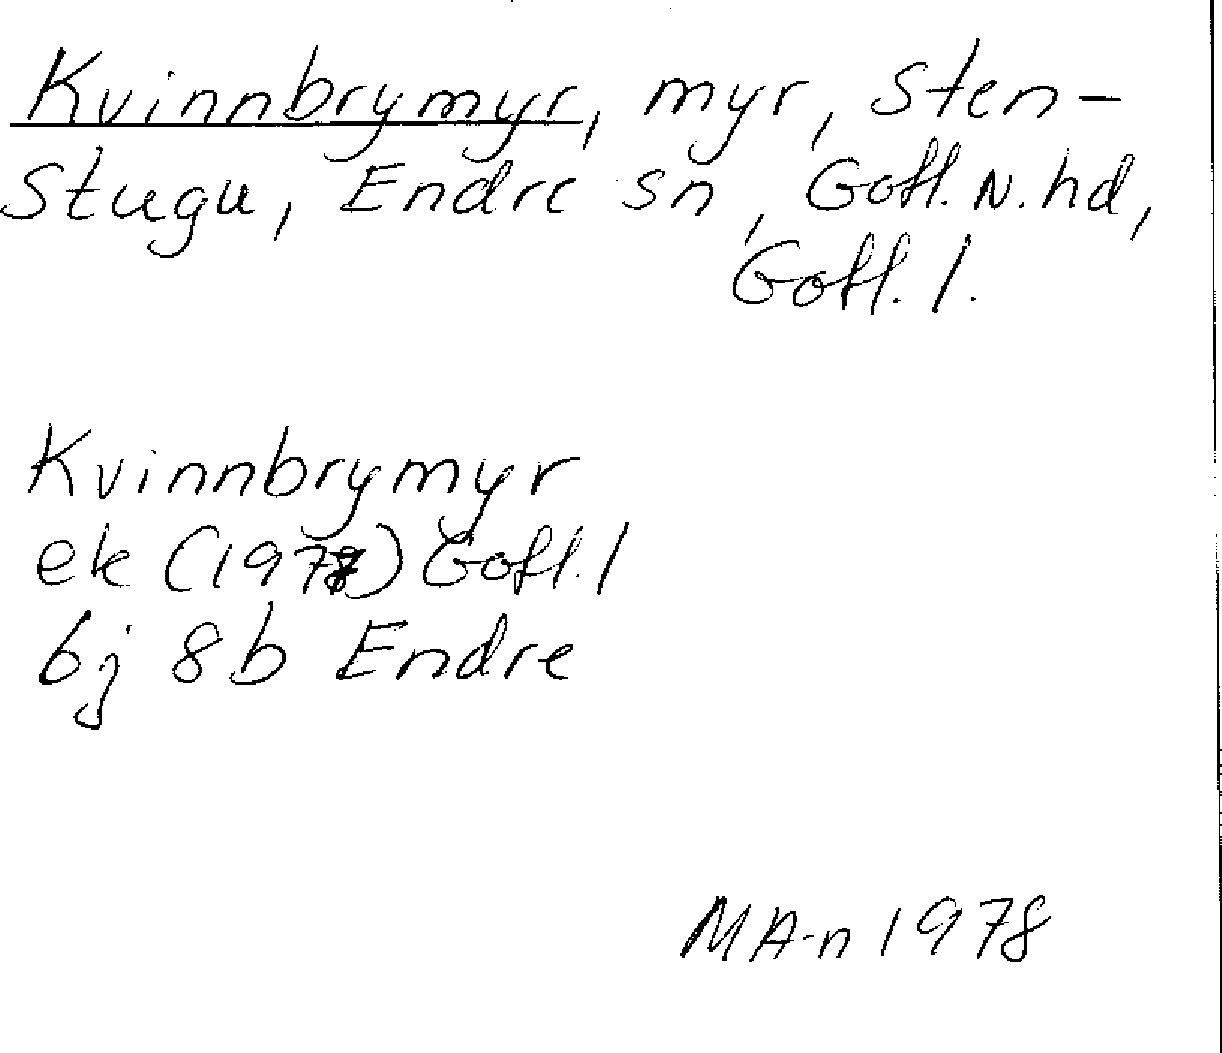 Kvinnbrymyr, myr, Sten-
Stugu, Endre sn, Gotl. N. hd,
Gotl. l.
Kvinnbrymyr
ek (1977) Gotl. l
6j 8b Endre
MA-n 1978